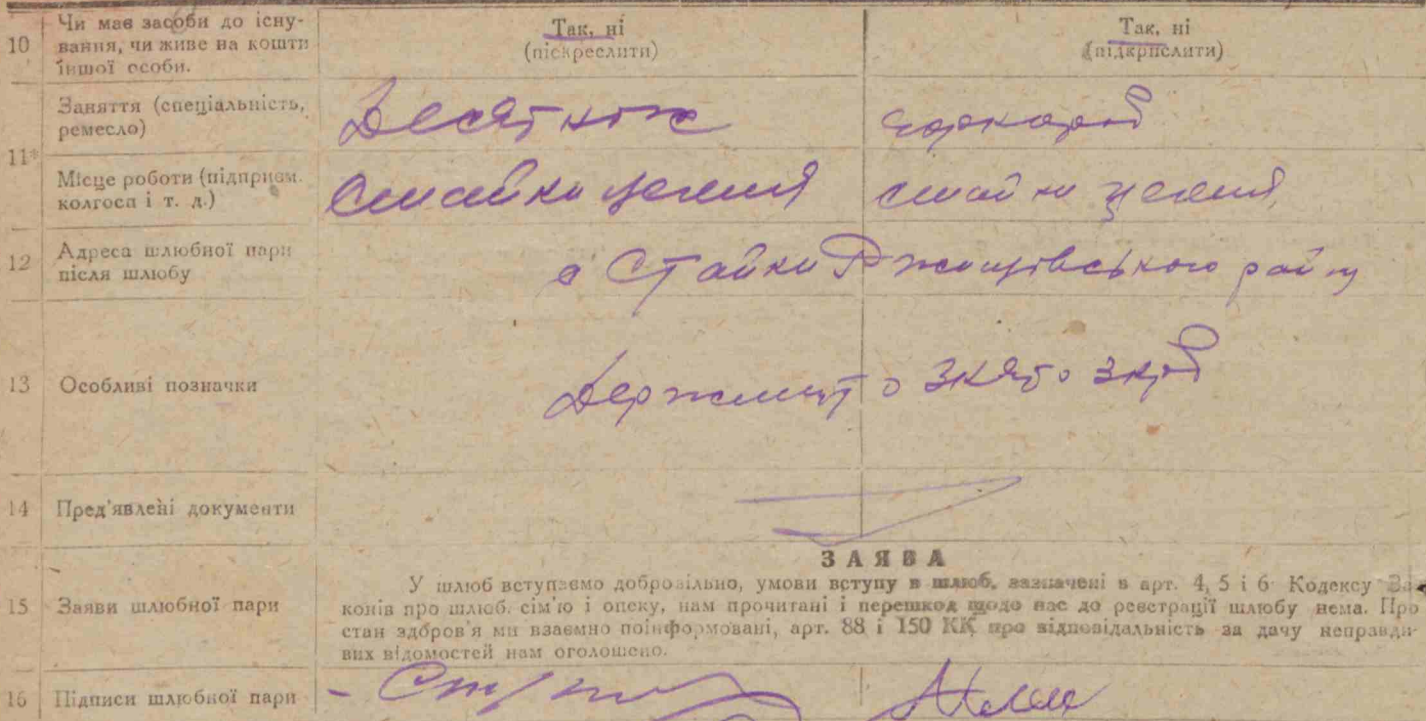 10 Чи має засоби до існу-
вання, чи живе на кошти
іншої особи.
Так, ні
(піскреслити)
Так, ні
(підкрпслити)
11*
Заняття (спеціальність,
ремесло)
Десятник
Місце роботи (підприєм.
колгосп і т. д.)
Стайки цегельня
стайки цегельня
12 Адреса шлюбної пари
після шлюбу
с Стайки Ржищівського рай ну
13 Особливі позначки
Держмито
14 Пред'явлені документи
15 Заяви шлюбної пари
ЗАЯВА
У шлюб вступаємо добровільно, умови вступу в шлюб, зазначені в арт. 4, 5 і 6 Кодексу За-
конів про шлюб. сім'ю і опеку, нам прочитані і перешкод щодо нас до реєстрації шлюбу нема. Про
стан здоров'я ми взаємно поінформовані, арт. 88 і 150 КК про відповідальність за дачу неправди-
вих відомостей нам оголошено.
16 Підписи шлюбної пари